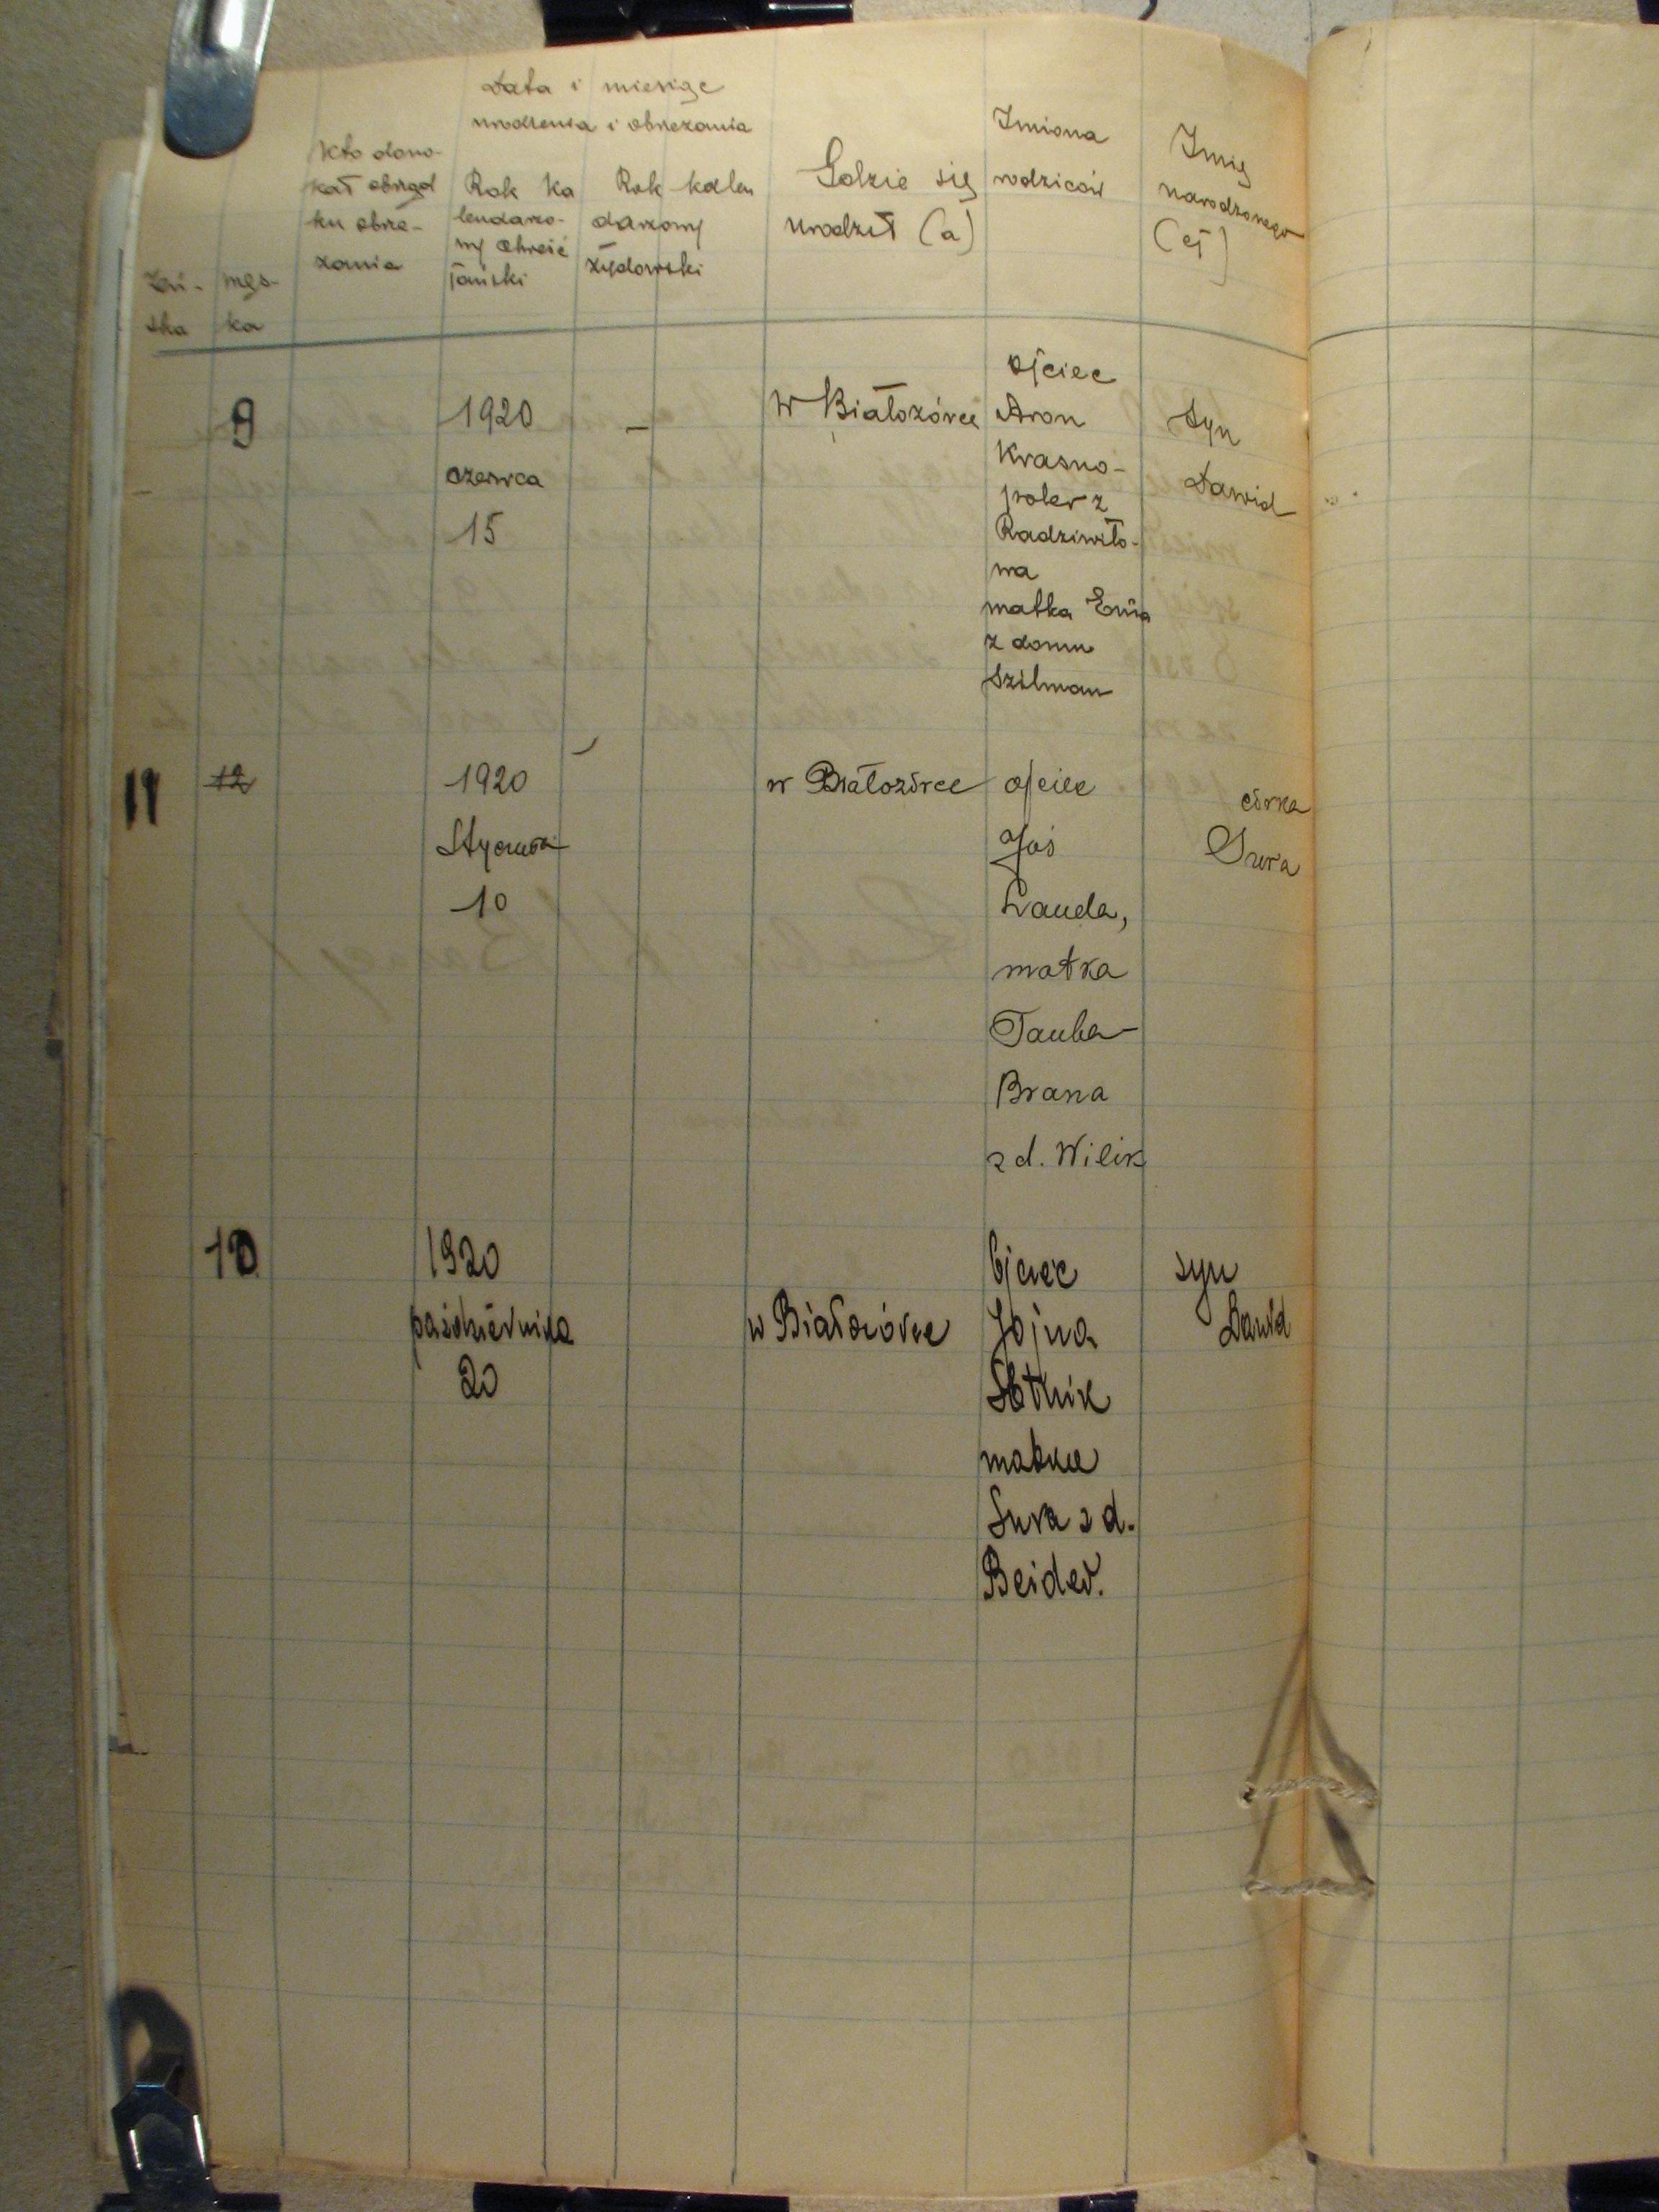 Data i miesiąc
urodzenia i obrzezania
żeń-
ska
męs-
ka
Kto doko-
kał obrząd
ku obrze-
zania
Rok ka
lendarzo-
wy chrześć
jański
Rok kalen
darzowy
żydowski
Gdzie się
urodził (a)
Imiona
rodziców
Imię
narodzonego
(ej)
9
1920
czerwca
15
–
w Białozórce
ojciec
Aron
Krasno-
poler z
Radziwiłło-
wa
matka
z domu
Szilman
Syn
Dawid
11
12
1920
Stycznia
10
w Białozórce
ojciec
Joś
Landa,
matka
Tauba-
Brana
z d. Wilik
córka
Sura
10
1920
października
20
w Białozórce
Ojciec
Jojna
Sotnik
matka
Sura z d.
Beider.
syn
Dawid